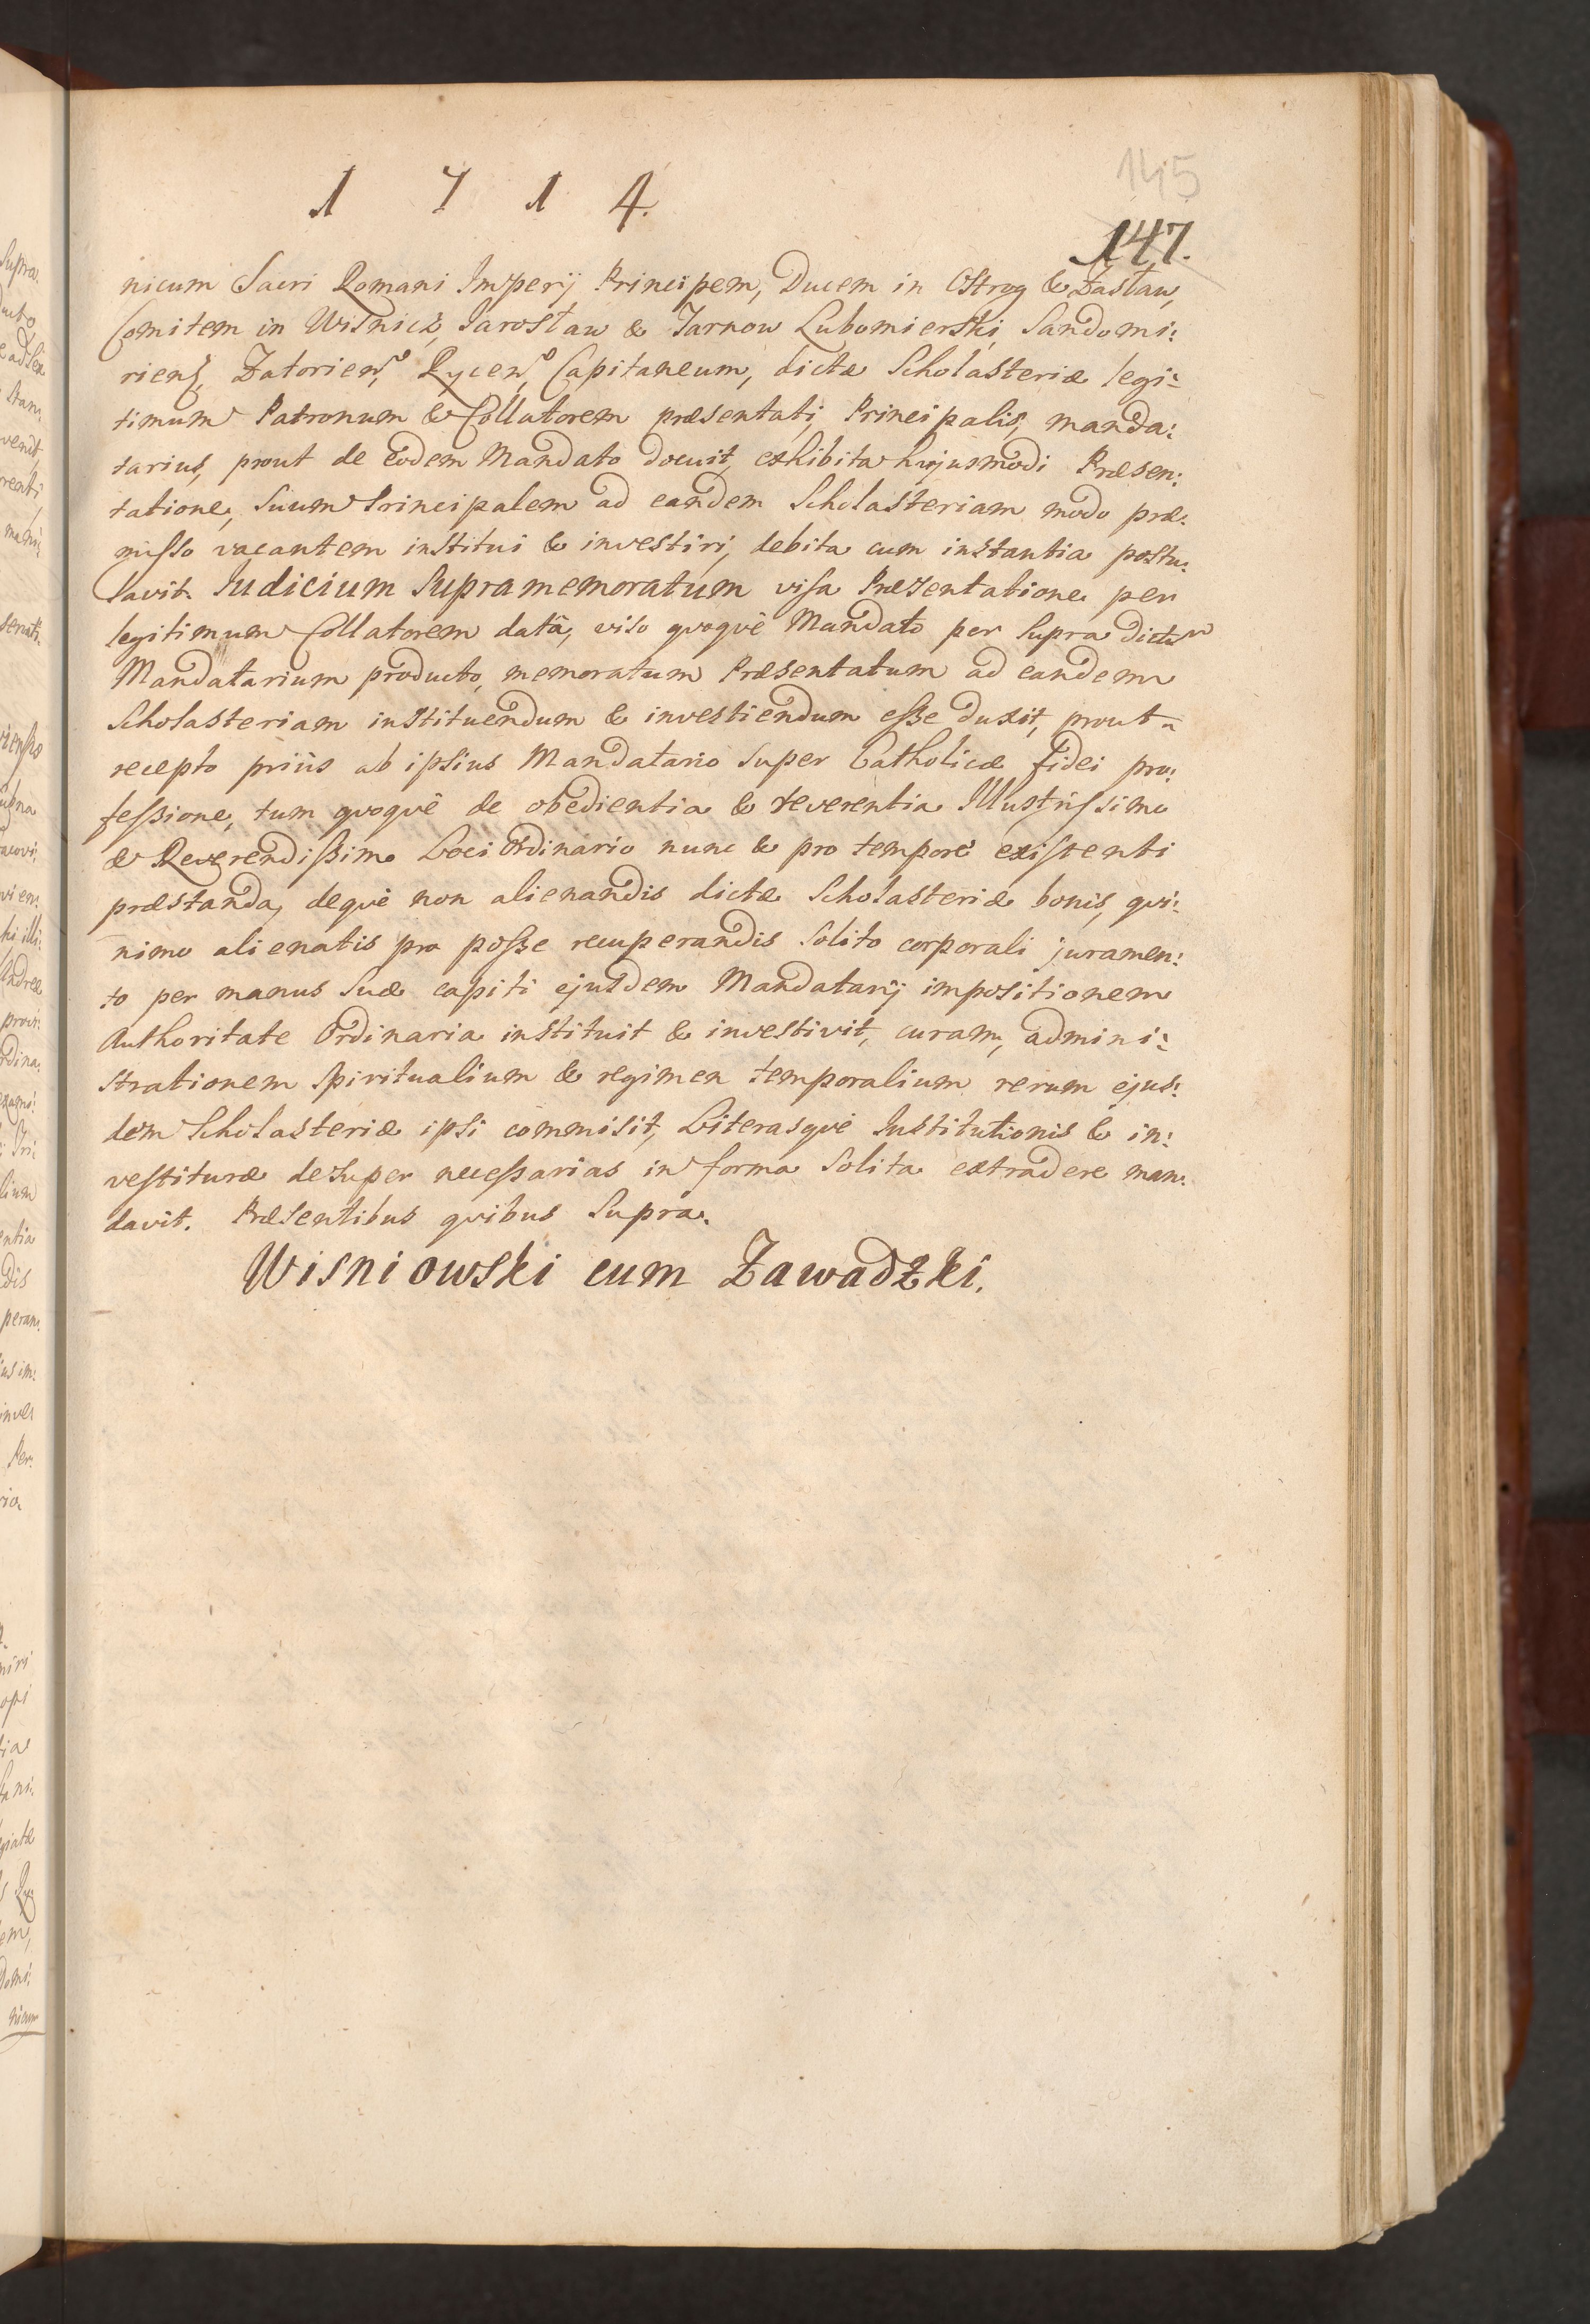 145
1 7 1 4.
147.
nicum Sacri Romani Imperij Principem, Ducem in Ostrog & Zasław,
Comitem in Wisnicz, Jarosław & Tarnow Lubomierski, Sandomi:
riens, Zatorien, Rycen, Capitaneum, dictæ Scholasteriæ legi:
timum Patronum & Collatorem præsentati, Principalis, manda:
tarius, prout de eodem Mandato docuit, exhibita hujusmodi Præsen:
tatione, suum Principalem ad eandem Scholasteriam modo præ:
misso vacantem institui & investiri, debita cum instantia postu:
lavit. Judicium supramemoratum visa Præsentatione per
legitimum Collatorem datâ, viso qvoqvè Mandato per supra dictum
Mandatarium producto, memoratum Præsentatum ad eandem
Scholasteriam instituendum & investiendum esse duxit, prout
recepto priùs ab ipsius Mandatario super Catholicæ fidei pro:
fessione, tum qvoqvè de obedientia & reverentia Illustrissimo
& Reverendissimo Loci Ordinario nunc & pro temporè existenti
præstanda, deqvè non alienandis dictæ Scholasteriæ bonis, qvi:
nimo alienatis pro posse recuperandis solito corporali juramen:
to per manus suæ capiti ejusdem Mandatarij impositionem
Authoritate Ordinaria instituit & investivit, curam, admini:
strationem spiritualium & regimen temporalium rerum ejus:
dem Scholasteriæ ipsi commisit, Literasqve Institutionis & in:
vestituræ desuper necessarias in forma solita extradere man:
davit. Præsentibus qvibus supra.
Wisniowski cum Zawadzki.